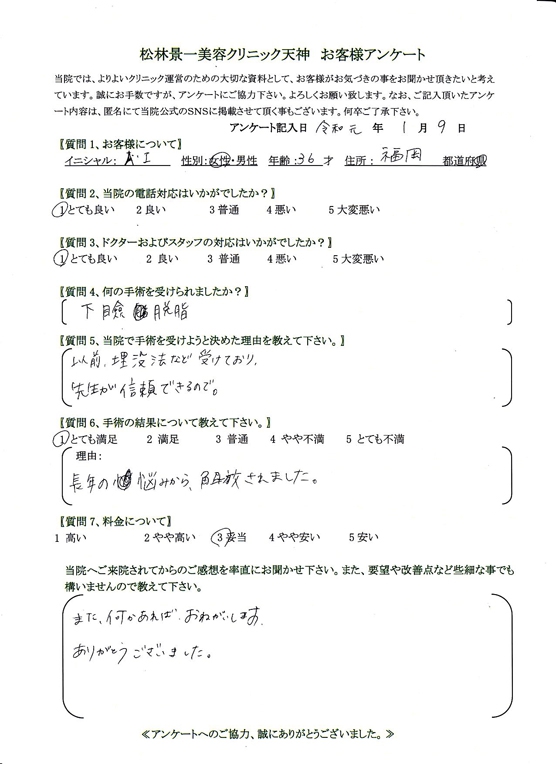 松林景一美容クリニック天神 お客様アンケート
当院では、よりよいクリニック運営のための大切な資料として、お客様がお気づきの事をお聞かせ頂きたいと考え
ています。誠にお手数ですが、アンケートにご協力下さい。よろしくお願い致します。なお、ご記入頂いたアンケ
ート内容は、匿名にて当院公式のSNSに掲載させて頂く事もございます。何卒ご了承下さい。
アンケート記入日 令和元 年 1 月 9 日
〖質問 1、お客様について〗
イニシャル: A・I 性別:女性・男性 年齢:36 才 住所: 福岡 都道府県
〖質問 2、当院の電話対応はいかがでしたか?〗
1 とても良い 2 良い 3 普通 4 悪い 5 大変悪い
〖質問 3、ドクターおよびスタッフの対応はいかがでしたか?〗
1 とても良い 2 良い 3 普通 4 悪い 5 大変悪い
〖質問 4、何の手術を受けられましたか?〗
下瞼 脱脂
〖質問 5、当院で手術を受けようと決めた理由を教えて下さい。〗
以前、埋没法など受けており、
先生が信頼できるので。
〖質問 6、手術の結果について教えて下さい。〗
1 とても満足 2 満足 3 普通 4 やや不満 5 とても不満
理由:
長年の 悩みから、解放されました。
〖質問 7、料金について〗
1 高い 2 やや高い 3 妥当 4 やや安い 5 安い
当院へご来院されてからのご感想を率直にお聞かせ下さい。また、要望や改善点など些細な事でも
構いませんので教えて下さい。
また、何かあれば、おねがいします。
ありがとうございました。
≪アンケートへのご協力、誠にありがとうございました。≫